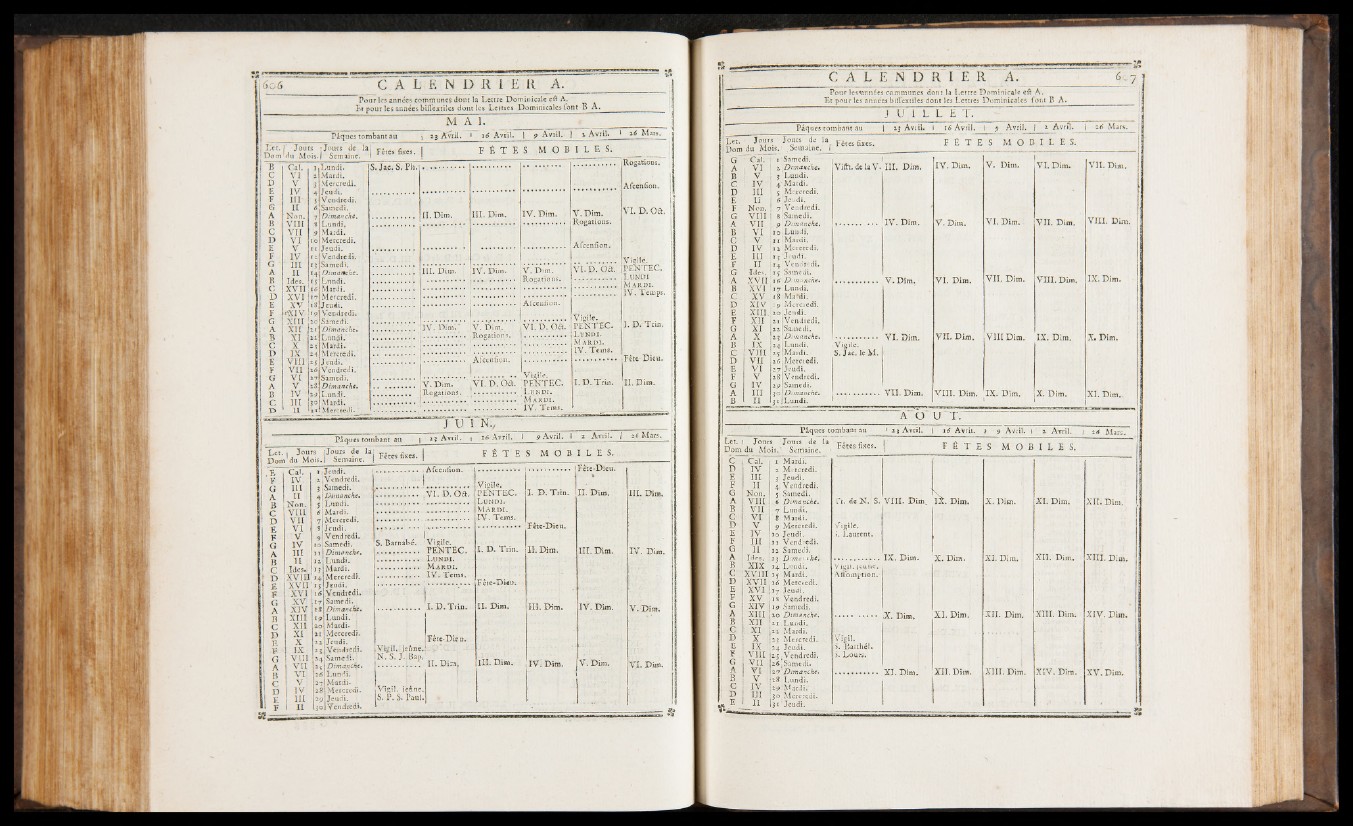 606
CALENDRIER A.
Pour les années communes dont la Lettre Dominicale eſt A.
Et pour les années biſſextiles dont les Lettres Dominicales ſont B A.
MAI.
Pâques tombant au 23 Avril. 16 Avril. 9 Avril. 2 Avril. 26 Mars.
Let. Dom Jours du Mois. Jours de la Semaine. Fêtes fixes. FÊTES MOBILES.
B Cal. 1 Lundi. S. Jac. S. Ph. Rogations.
C VI 2 Mardi.
D V 3 Mercredi.
E IV 4 Jeudi. Aſcenſion.
F III 5 Vendredi.
G II 6 Samedi.
A Non. 7 Dimanche. II. Dim. III. Dim. IV. Dim. V. Dim. VI. D. Oct.
B VIII 8 Lundi. Rogations.
C VII 9 Mardi.
D VI 10 Mercredi.
E V 11 Jeudi. Aſcenſion.
F IV 12 Vendredi.
G III 13 Samedi. Vigile.
A II 14 Dimanche. III. Dim. IV. Dim. V. Dim. VI. D. Oct. PENTEC.
B Ides. 15 Lundi. Rogations. LUNDI
C XVII 16 Mardi. MARDI.
D XVI 17 Mercredi. IV. Temps.
E XV 18 Jeudi. Aſcenſion.
F XIV 19 Vendredi.
G XIII 20 Samedi. Vigile.
A XII 21 Dimanche. IV. Dim. V. Dim. VI. D. Oct. PENTEC. I. D. Trin.
B XI 22 Lundi. Rogations. LUNDI.
C X 23 Mardi. MARDI.
D IX 24 Mercredi. IV. Tems.
E VIII 25 Jeudi. Aſcenſion. Fête-Dieu.
F VII 26 Vendredi.
G VI 27 Samedi. Vigile.
A V 28 Dimanche. V. Dim. VI. D. Oct. PENTEC. I. D. Trin. II. Dim.
B IV 29 Lundi. Rogations. LUNDI.
C III 30 Mardi. MARDI.
D II 31 Mercredi. IV. Tems.
JUIN.
Pâques tombant au 23 Avril. 16 Avril. 9 Avril. 2 Avril. 26 Mars.
Let. Dom Jours du Mois. Jours de la Semaine. Fêtes fixes. FÊTES MOBILES.
E Cal. 1 Jeudi. Aſcenſion. Fête-Dieu.
F IV 2 Vendredi.
G III 3 Samedi. Vigile.
A II 4 Dimanche. VI. D. Oct. PENTEC. I. D. Trin. II. Dim. III. Dim.
B Non. 5 Lundi. LUNDI.
C VIII 6 Mardi. MARDI.
D VII 7 Mercredi. IV. Tems.
E VI 8 Jeudi. Fête-Dieu.
F V 9 Vendredi.
G IV 10 Samedi. S. Barnabé. Vigile.
A III 11 Dimanche. PENTEC. I. D. Trin. II. Dim. III. Dim. IV. Dim.
B II 12 Lundi. LUNDI.
C Ides. 13 Mardi. MARDI.
D XVIII 14 Mercredi. IV. Tems.
E XVII 15 Jeudi. Fête-Dieu.
F XVI 16 Vendredi.
G XV 17 Samedi.
A XIV 18 Dimanche. I. D. Trin. II. Dim. III. Dim. IV. Dim. V. Dim.
B XIII 19 Lundi.
C XII 20 Mardi.
D XI 21 Mercredi.
E X 22 Jeudi. Fête-Dieu.
F IX 23 Vendredi. Vigil. jeûne.
G VIII 24 Samedi. N. S. J. Bap.
A VII 25 Dimanche. II. Dim. III. Dim. IV. Dim. V. Dim. VI. Dim.
B VI 26 Lundi.
C V 27 Mardi.
D IV 28 Mercredi. Vigil. jeûne.
E III 29 Jeudi. S. P. S. Paul.
F II 30 Vendredi.
CALENDRIER A. 607
Pour les années communes dont la Lettre Dominicale eſt A.
Et pour les années biſſextiles dont les Lettres Dominicales ſont B A.
JUILLET.
Pâques tombant au 23 Avril. 16 Avril. 9 Avril. 2 Avril. 26 Mars.
Let. Dom Jours du Mois. Jours de la Semaine. Fêtes fixes. FÊTES MOBILES.
G Cal. 1 Samedi.
A VI 2 Dimanche. Viſit. de la V. III. Dim. IV. Dim. V. Dim. VI. Dim. VII. Dim.
B V 3 Lundi.
C IV 4 Mardi.
D III 5 Mercredi.
E II 6 Jeudi.
F Non. 7 Vendredi.
G VIII 8 Samedi.
A VII 9 Dimanche. IV. Dim. V. Dim. VI. Dim. VII. Dim. VIII. Dim.
B VI 10 Lundi.
C V 11 Mardi.
D IV 12 Mercredi.
E III 13 Jeudi.
F II 14 Vendredi.
G Ides. 15 Samedi.
A XVII 16 Dimanche. V. Dim. VI. Dim. VII. Dim. VIII. Dim. IX. Dim.
B XVI 17 Lundi.
C XV 18 Mardi.
D XIV 19 Mercredi.
E XIII 20 Jeudi.
F XII 21 Vendredi.
G XI 22 Samedi.
A X 23 Dimanche. VI. Dim. VII. Dim. VIII Dim. IX. Dim. X. Dim.
B IX 24 Lundi. Vigile.
C VIII 25 Mardi. S. Jac. le M.
D VII 26 Mercredi.
E VI 27 Jeudi.
F V 28 Vendredi.
G IV 29 Samedi.
A III 30 Dimanche. VII. Dim. VIII. Dim. IX. Dim. X. Dim. XI. Dim.
B II 31 Lundi.
AOUT.
Pâques tombant au 23 Avril. 16 Avril. 9 Avril. 2 Avril. 26 Mars.
Let. Dom Jours du Mois. Jours de la Semaine. Fêtes fixes. FÊTES MOBILES.
C Cal. 1 Mardi.
D IV 2 Mercredi.
E III 3 Jeudi.
F II 4 Vendredi.
G Non. 5 Samedi.
A VIII 6 Dimanche. Tr. de N. S. VIII. Dim. IX. Dim. X. Dim. XI. Dim. XII. Dim.
B VII 7 Lundi.
C VI 8 Mardi.
D V 9 Mercredi. Vigile.
E IV 10 Jeudi. S. Laurent.
F III 11 Vendredi.
G II 12 Samedi.
A Ides. 13 Dimanche. IX. Dim. X. Dim. XI. Dim. XII. Dim. XIII. Dim.
B XIX 14 Lundi. Vigil. jeûne.
C XVIII 15 Mardi. Aſſomption.
D XVII 16 Mercredi.
E XVI 17 Jeudi.
F XV 18 Vendredi.
G XIV 19 Samedi.
A XIII 20 Dimanche. X. Dim. XI. Dim. XII. Dim. XIII. Dim. XIV. Dim.
B XII 21 Lundi.
C XI 22 Mardi.
D X 23 Mercredi. Vigil.
E IX 24 Jeudi. S. Barthél.
F VIII 25 Vendredi. S. Louis.
G VII 26 Samedi.
A VI 27 Dimanche. XI. Dim. XII. Dim. XIII. Dim. XIV. Dim. XV. Dim.
B V 28 Lundi.
C IV 29 Mardi.
D III 30 Mercredi.
E II 31 Jeudi.